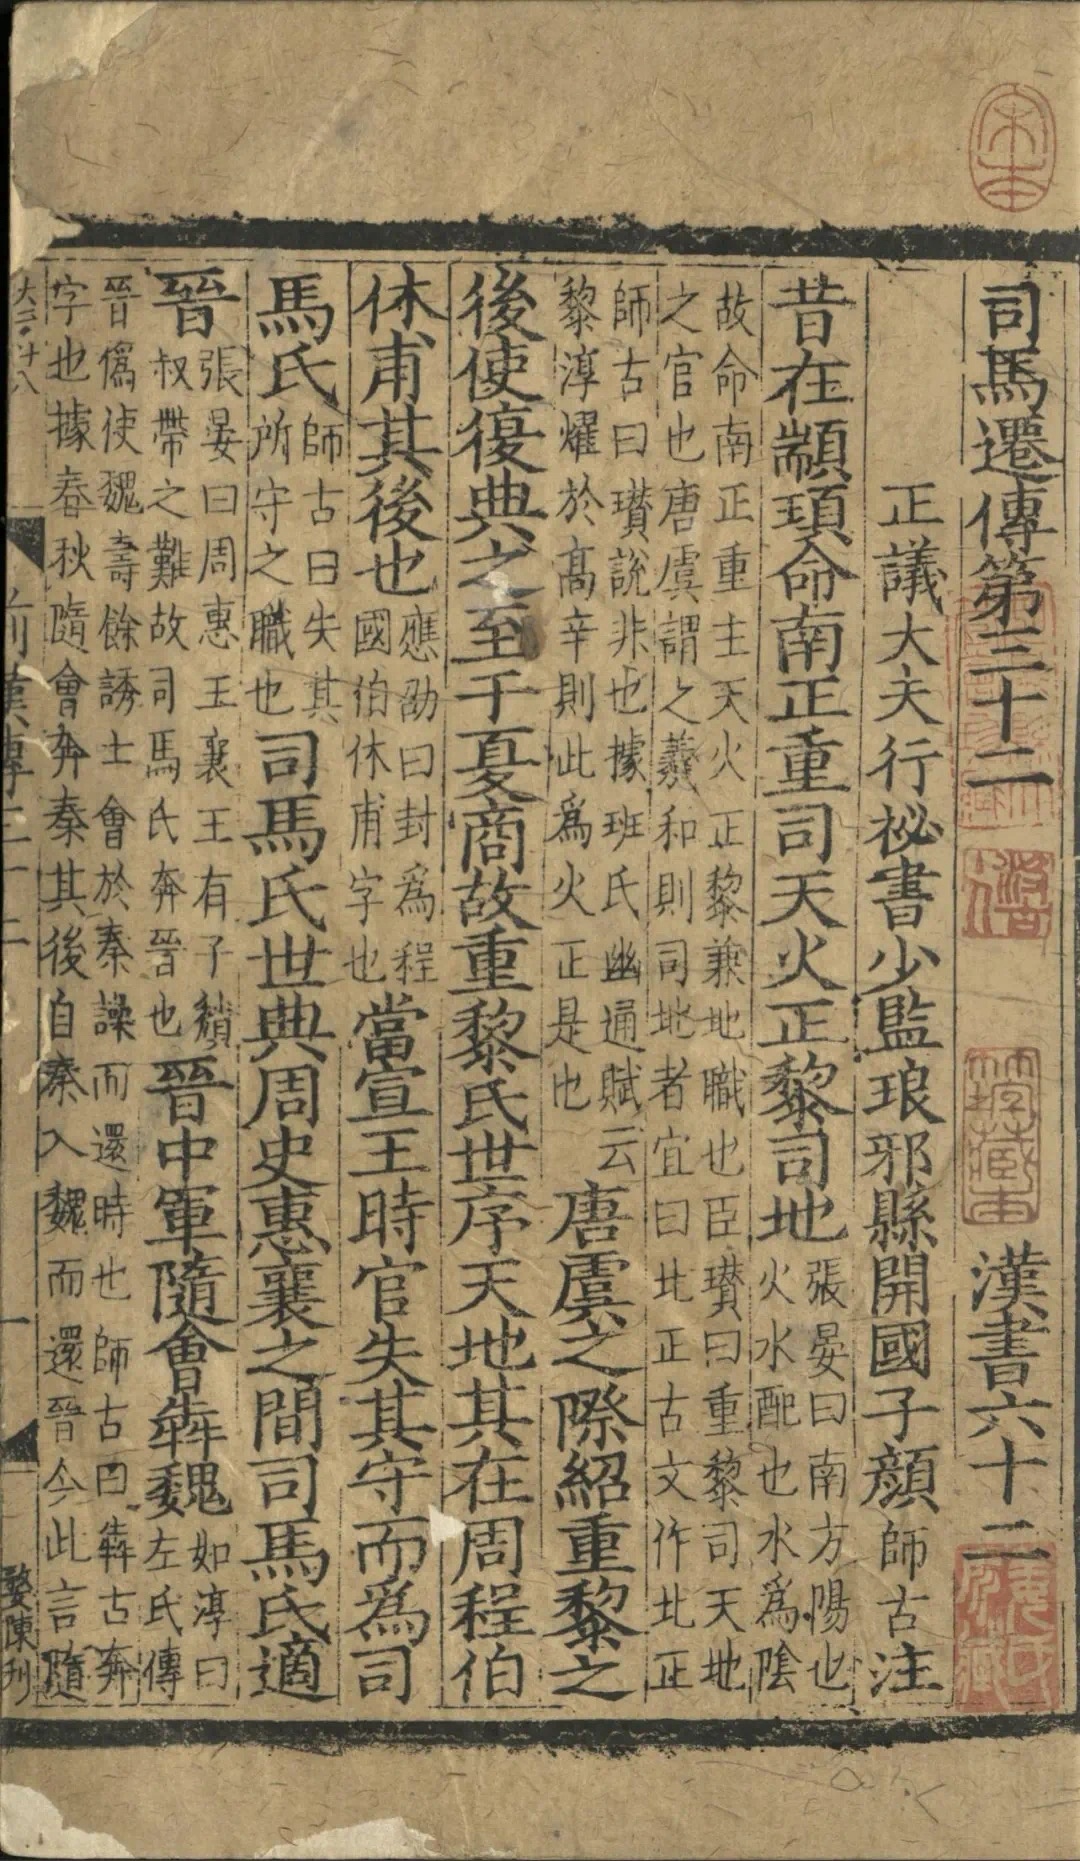 司馬遷傳第三十二 漢書六十二
正議大夫行祕書少監琅邪縣開國子顏師古注
昔在顓頊命南正重司天火正黎司地
張晏曰南方陽也
火水配也水爲陰
故命南正重主天火正黎兼地職也臣瓚曰重黎司天地
之官也唐虞謂之羲和則司地者宜曰北正古文作北正
師古曰瓚說非也據班氏幽通賦云
黎淳燿於高辛則此爲火正是也
唐虞之際紹重黎之
後使復典之至于夏商故重黎氏世序天地其在周程伯
休甫其後也
應劭曰封爲程
國伯休甫字也
當宣王時官失其守而爲司
馬氏
師古曰失其
所守之職也
司馬氏世典周史惠襄之間司馬氏適
晉
張晏曰周惠王襄王有子穨
叔帶之難故司馬氏奔晉也
晉中軍隨會犇魏
如淳曰
左氏傳
晉僞使魏壽餘誘士會於秦譟而還時也師古曰犇古奔
字也據春秋隨會奔秦其後自秦入魏而還晉今此言隨
前漢傳三十二
一
陳刋